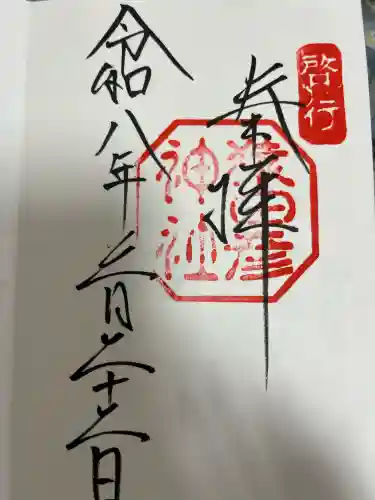 啓行
奉拝
猿田彦
神社
令和八年二月二十二日